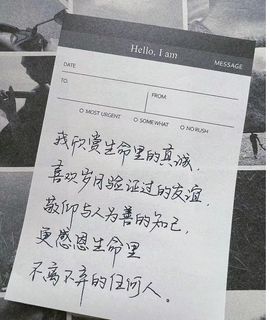 Hello, I am
MESSAGE
DATE
TO.
FROM
MOST URGENT
SOMEWHAT
NO RUSH
我欣赏生命里的真诚,
喜欢岁月验证过的友谊,
敬仰与人为善的知己,
更感恩生命里
不离不弃的任何人。